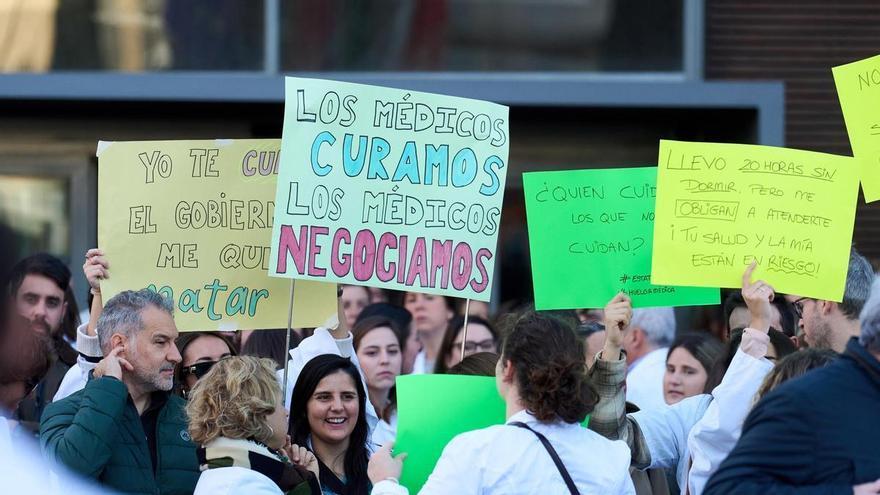 YO TE CU
EL GOBIERN
ME QUI
matar
LOS MÉDICOS
CURAMOS
LOS MÉDICOS
NEGOCIAMOS
¿QUIEN CUID
LOS QUE NO
CUIDAN?
#ESTAT
#HUELGA MEDICA
LLEVO 20 HORAS SIN
DORMIR, PERO ME
OBLIGAN A ATENDERTE
¡TU SALUD Y LA MÍA
ESTÁN EN RIESGO!
NO